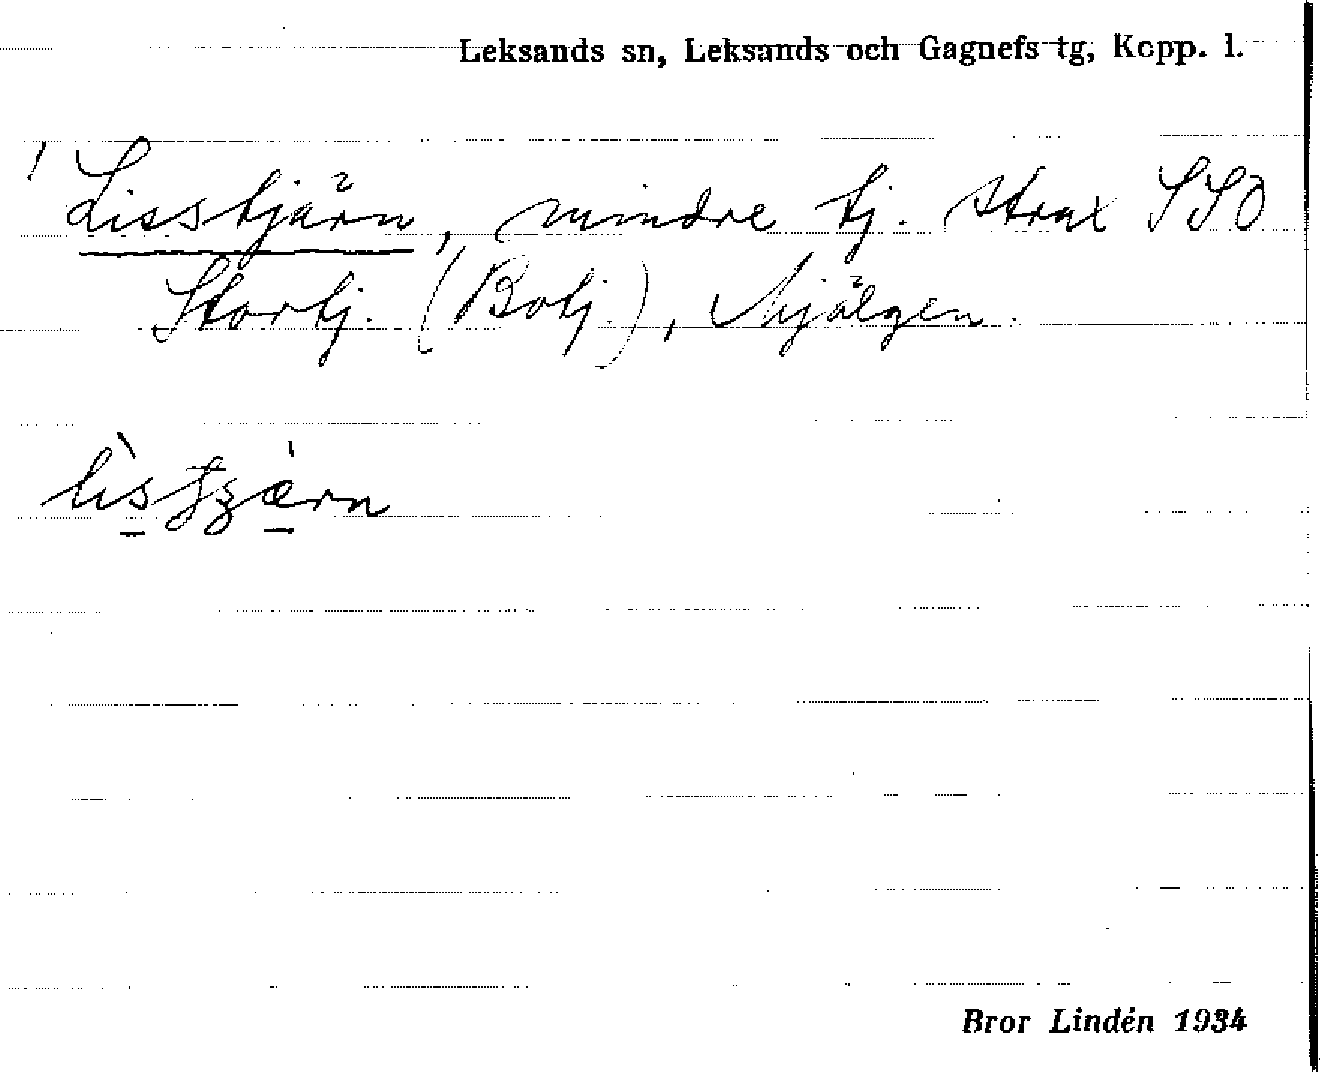 Leksands sn, Leksands och Gagnefs tg, Kopp. l.
! Lisstjärn, mindre tj. strax SSO
Stortj. (Botj.), Mjälgen.
Bror Lindén 1934